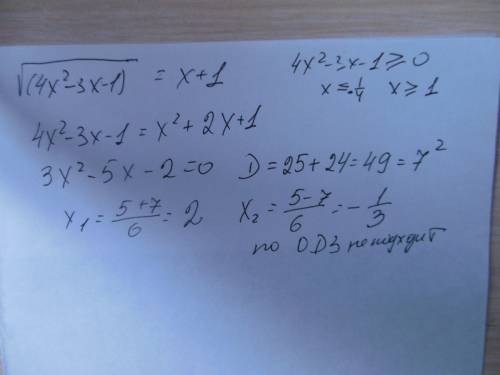 √(4x²-3x-1) = x+1
4x²-3x-1 ≥ 0
x ≤ -1/4 x ≥ 1
4x²-3x-1 = x²+2x+1
3x²-5x-2=0 D=25+24=49=7²
x₁ = (5+7)/6 = 2 x₂ = (5-7)/6 = -1/3
по ОДЗ не подходит